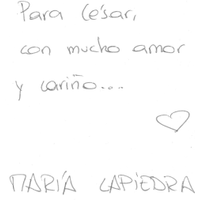 Para César,
con mucho amor
y cariño...
MARÍA CAPIEDRA